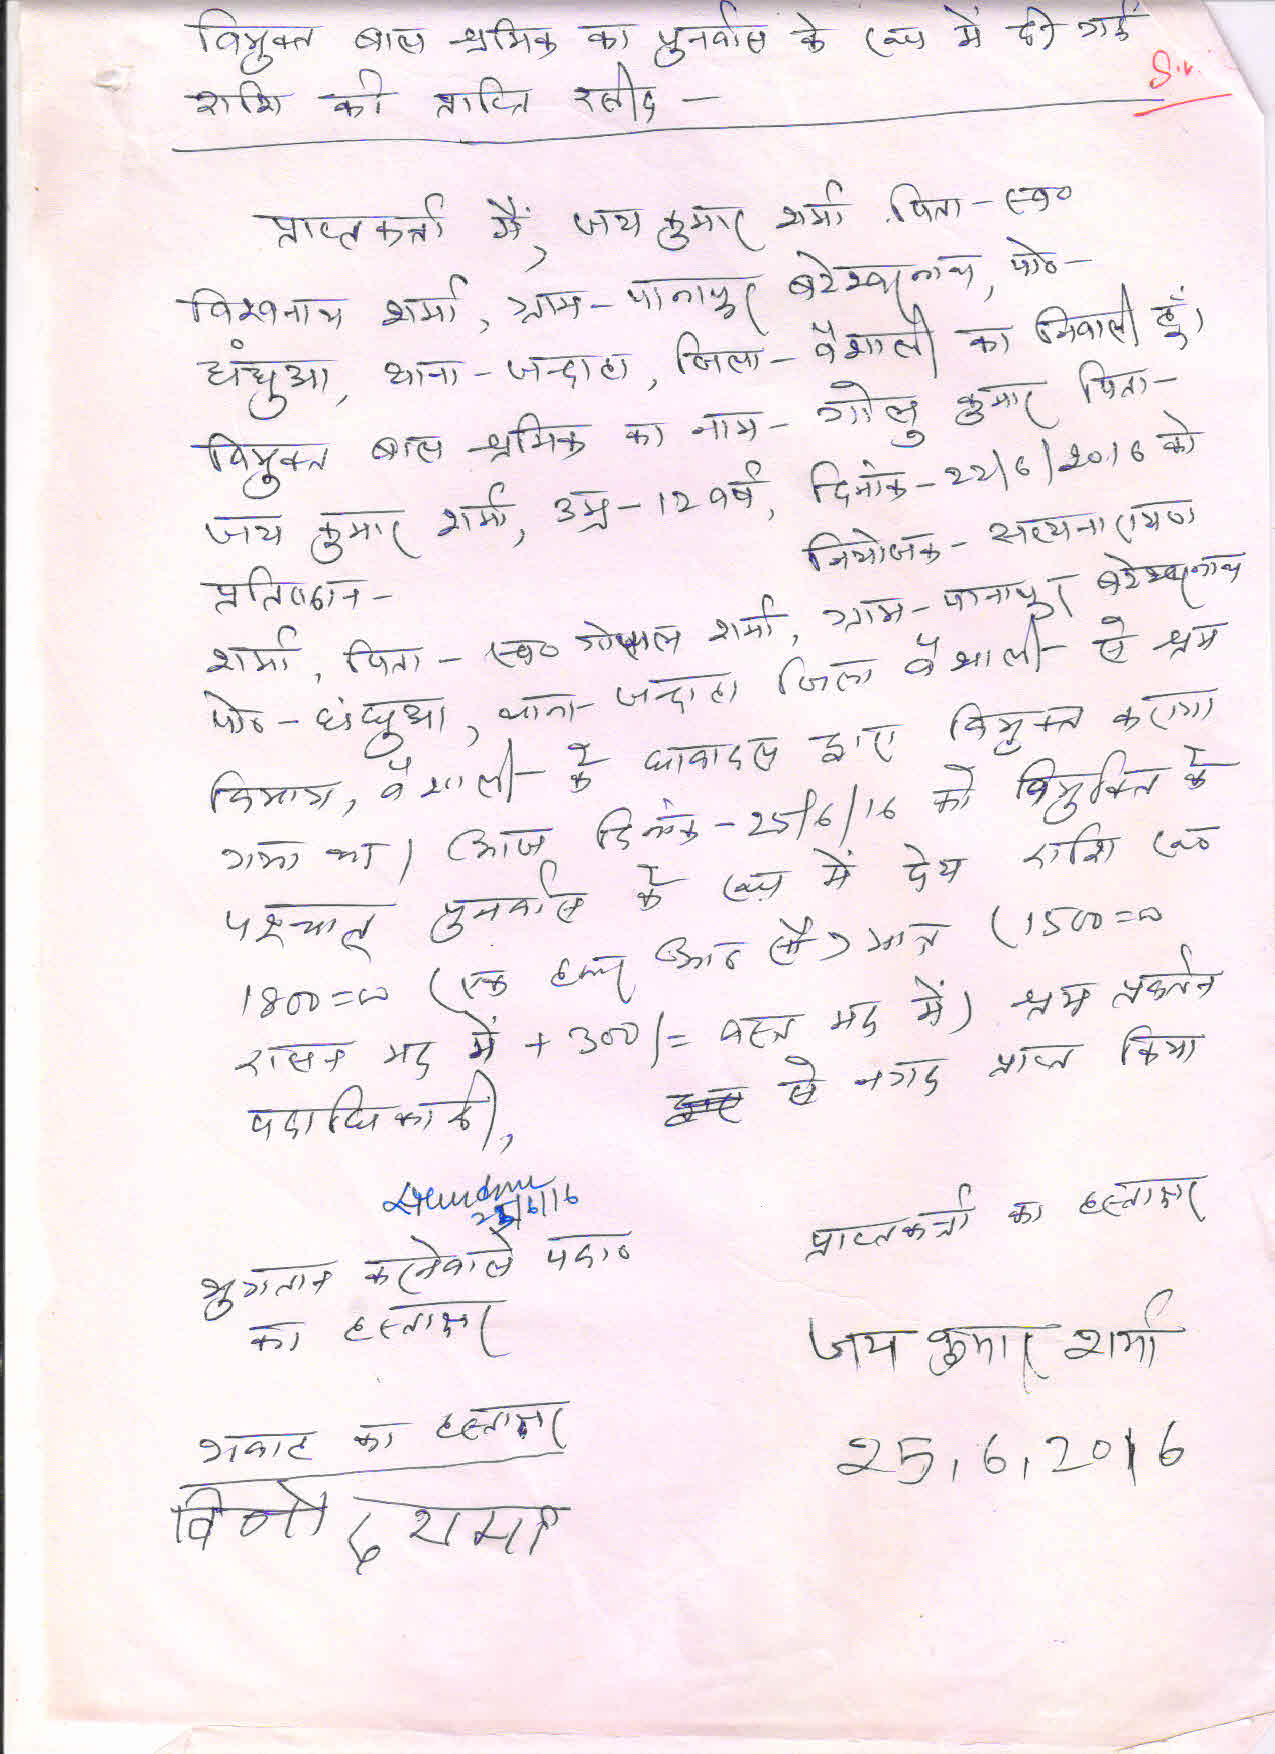 विमुक्त बाल श्रमिक का पुनर्वास के रूप में दी गई
राशि की प्राप्ति रसीद –
प्राप्तकर्ता मैं, जय कुमार शर्मा पिता – स्व०
विश्वनाथ शर्मा, ग्राम – पानापुर बटेश्वरनाथ, पो० –
धंधुआ, थाना – जन्दाहा, जिला – वैशाली का निवासी हूँ।
विमुक्त बाल श्रमिक का नाम – गोलु कुमार पिता –
जय कुमार शर्मा, उम्र – 12 वर्ष, दिनांक – 22/6/2016 को
प्रतिष्ठान – नियोजक – सत्यनारायण
शर्मा, पिता – स्व० गोपाल शर्मा, ग्राम – पानापुर बटेश्वरनाथ
पो० – धंधुआ, थाना – जन्दाहा जिला वैशाली – से श्रम
विभाग, वैशाली – के धावादल द्वारा विमुक्त कराया
गया था। आज दिनांक – 25/6/16 को विमुक्ति के
पश्चात् पुनर्वास के रूप में देय राशि रू०
1800=00 (एक हजार आठ सौ) मात्र (1500=00
राशन मद में + 300/= वस्त्र मद में) श्रम प्रवर्तन
पदाधिकारी, से नगद प्राप्त किया
25/6/16
भुगतान करनेवाले पदा०
का हस्ताक्षर
प्राप्तकर्ता का हस्ताक्षर
जय कुमार शर्मा
25.6.2016
गवाह का हस्ताक्षर
विनोद शर्मा